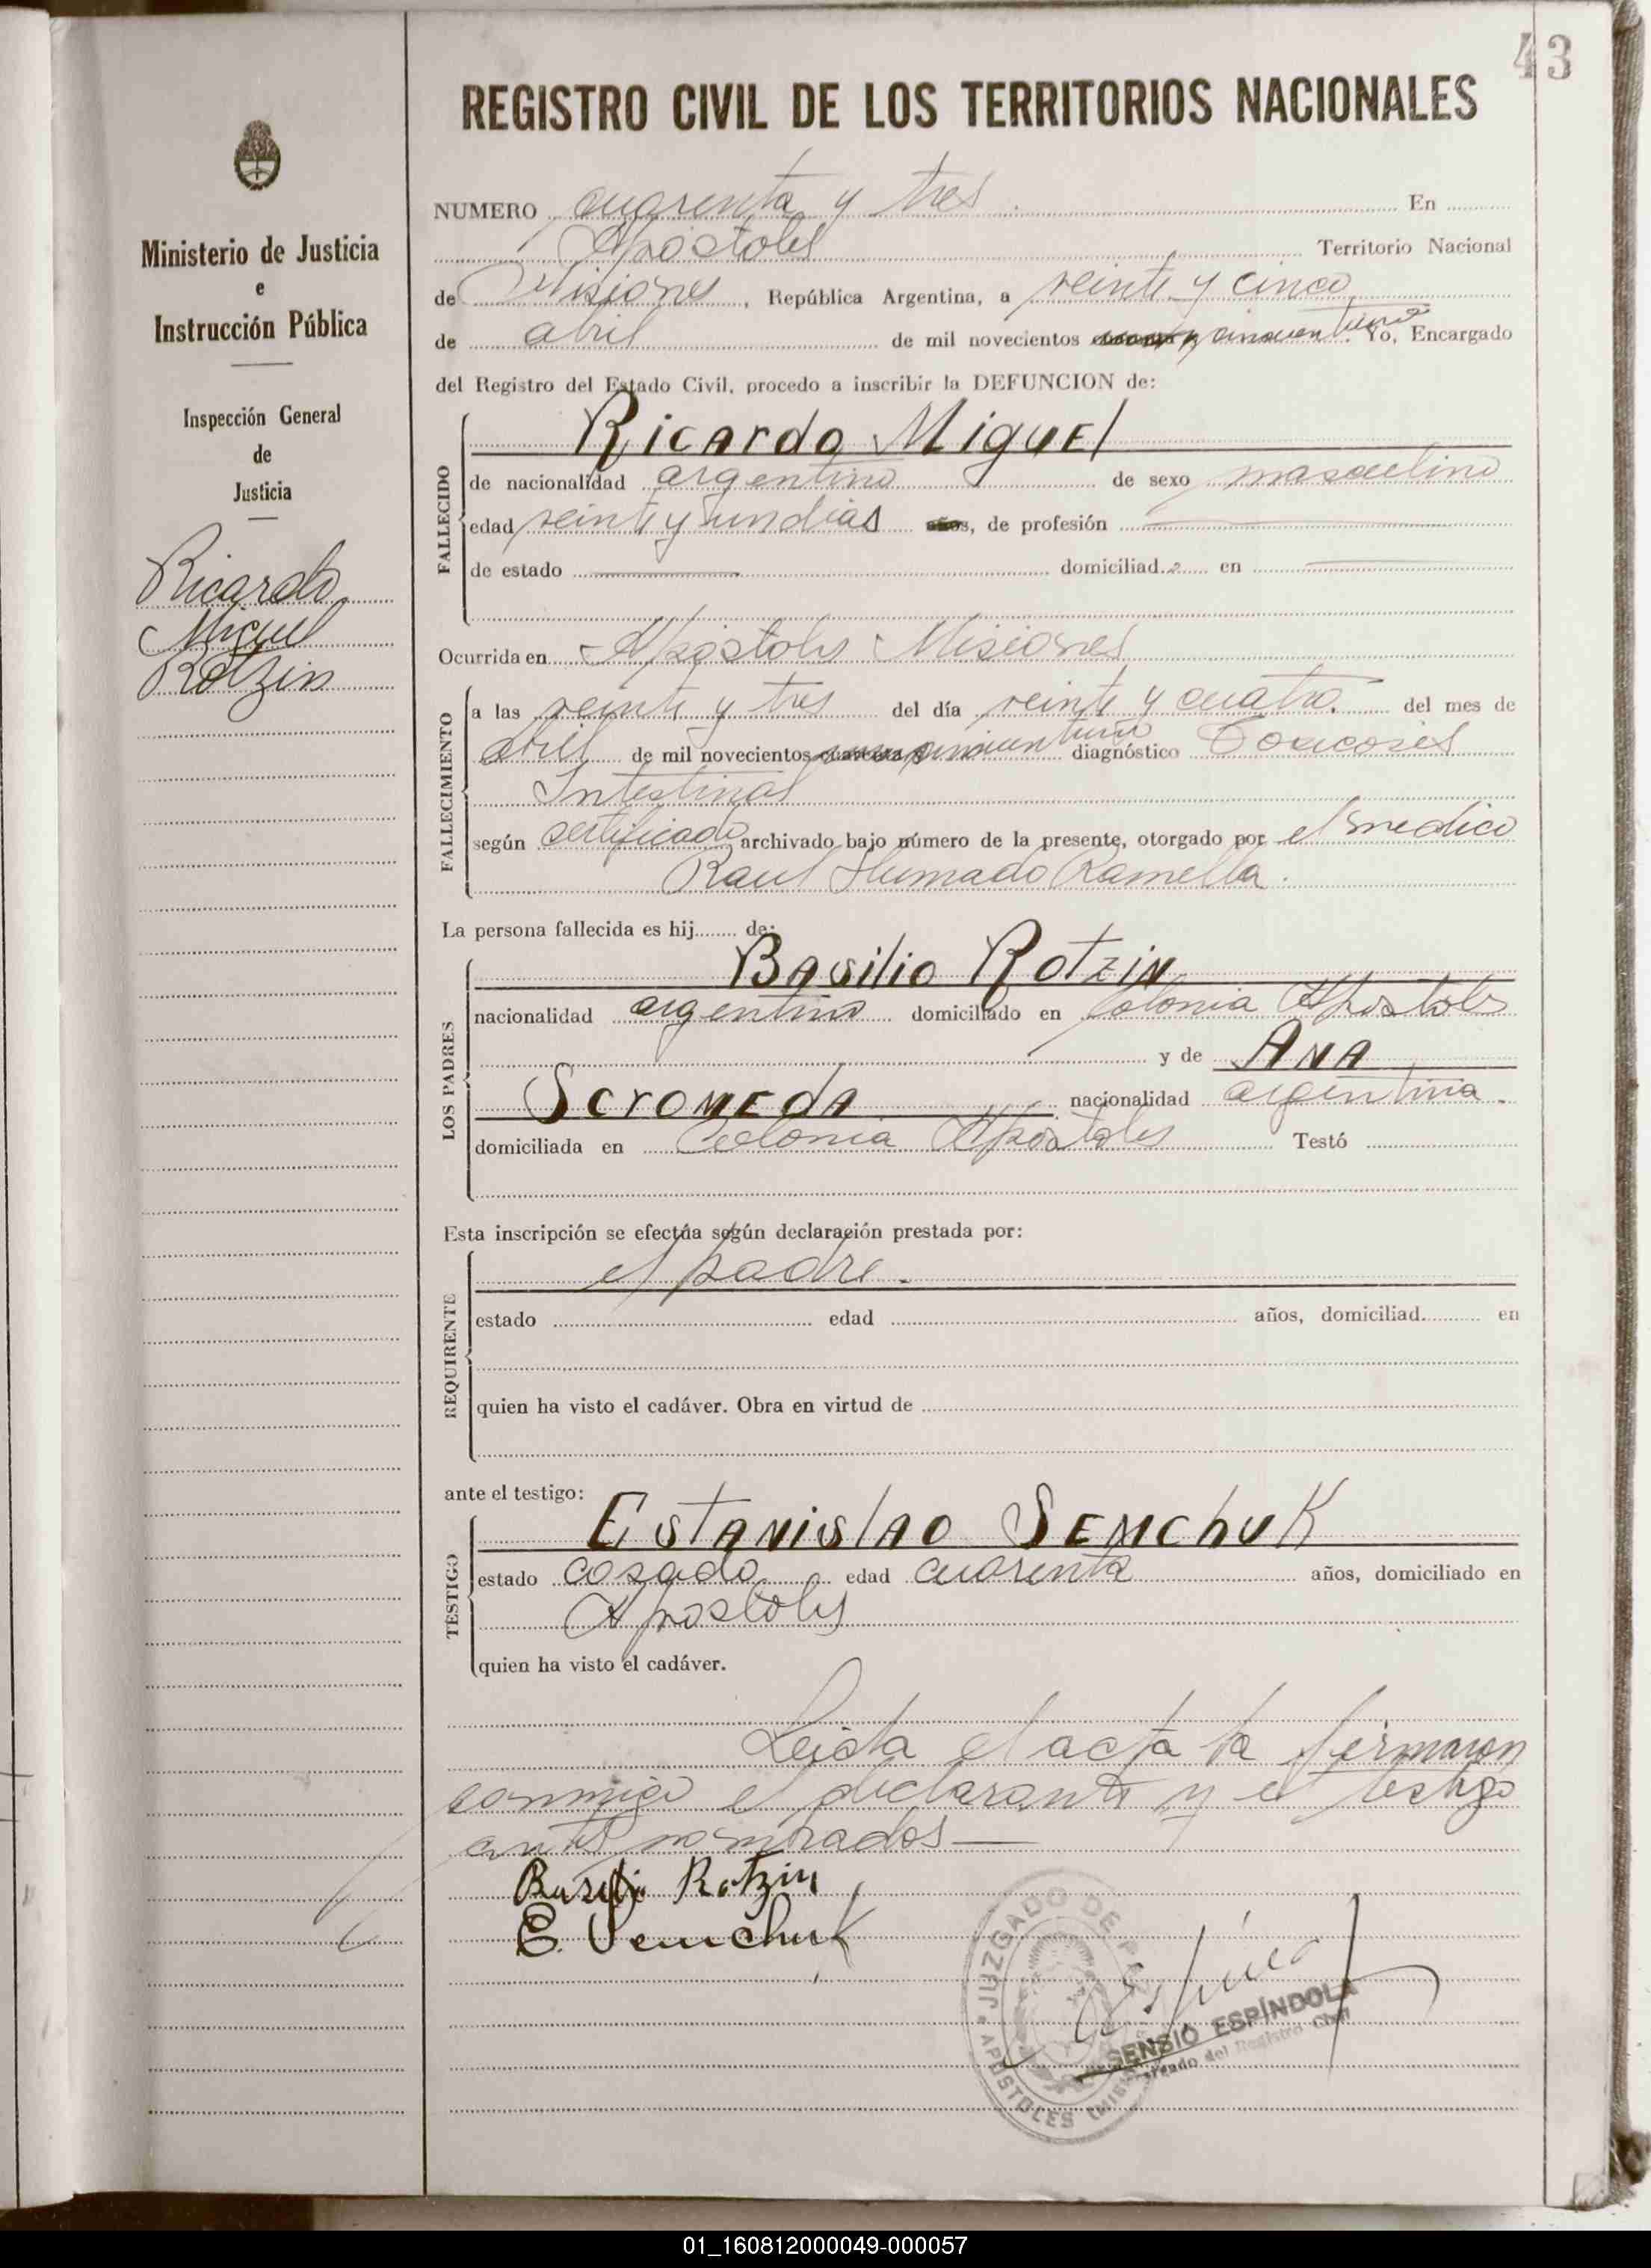 43
REGISTRO CIVIL DE LOS TERRITORIOS NACIONALES
Ministerio de Justicia
e
Instrucción Pública
Inspección General
de
Justicia
Ricardo
Miguel
Rotzin
NUMERO cuarenta y tres En
Apóstoles Territorio Nacional
de Misiones, República Argentina, a veinte y cinco
de abril de mil novecientos cincuentiuno Yo, Encargado
del Registro del Estado Civil, procedo a inscribir la DEFUNCION de:
FALLECIDO
Ricardo Miguel
de nacionalidad argentino de sexo masculino
edad veinte y un dias años, de profesión
de estado domiciliad o en
Ocurrida en Apóstoles Misiones
FALLECIMIENTO
a las veinte y tres del día veinte y cuatro del mes de
abril de mil novecientos cincuentiuno diagnóstico Toxicosis
Intestinal
según certificado archivado bajo número de la presente, otorgado por el medico
Raul Ramella.
La persona fallecida es hij de:
LOS PADRES
Basilio Rotzin
nacionalidad argentino domiciliado en Colonia Apostoles
y de Ana
Scromeda nacionalidad argentina.
domiciliada en Colonia Apóstoles Testó
Esta inscripción se efectúa según declaración prestada por:
REQUIRENTE
el padre.
estado edad años, domiciliad en
quien ha visto el cadáver. Obra en virtud de
ante el testigo:
TESTIGO
Estanislao Semchuk
estado casado edad cuarenta años, domiciliado en
Apostoles
quien ha visto el cadáver.
Leida el acta la firmaron
conmigo el declarante y el testigo
antes nombrados
Basilio Rotzin
E. Semchuk
JUZGADO DE PAZ
APOSTOLES
SENSIO ESPÍNDOLA
Encargado del Registro Civil
01_160812000049-000057